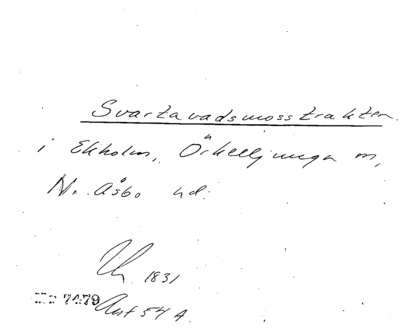 Svartavadsmosstrakten
i Ekholm, Örkelljunga sn,
N. Åsbo hd.
1831
7479 Ant 54 A